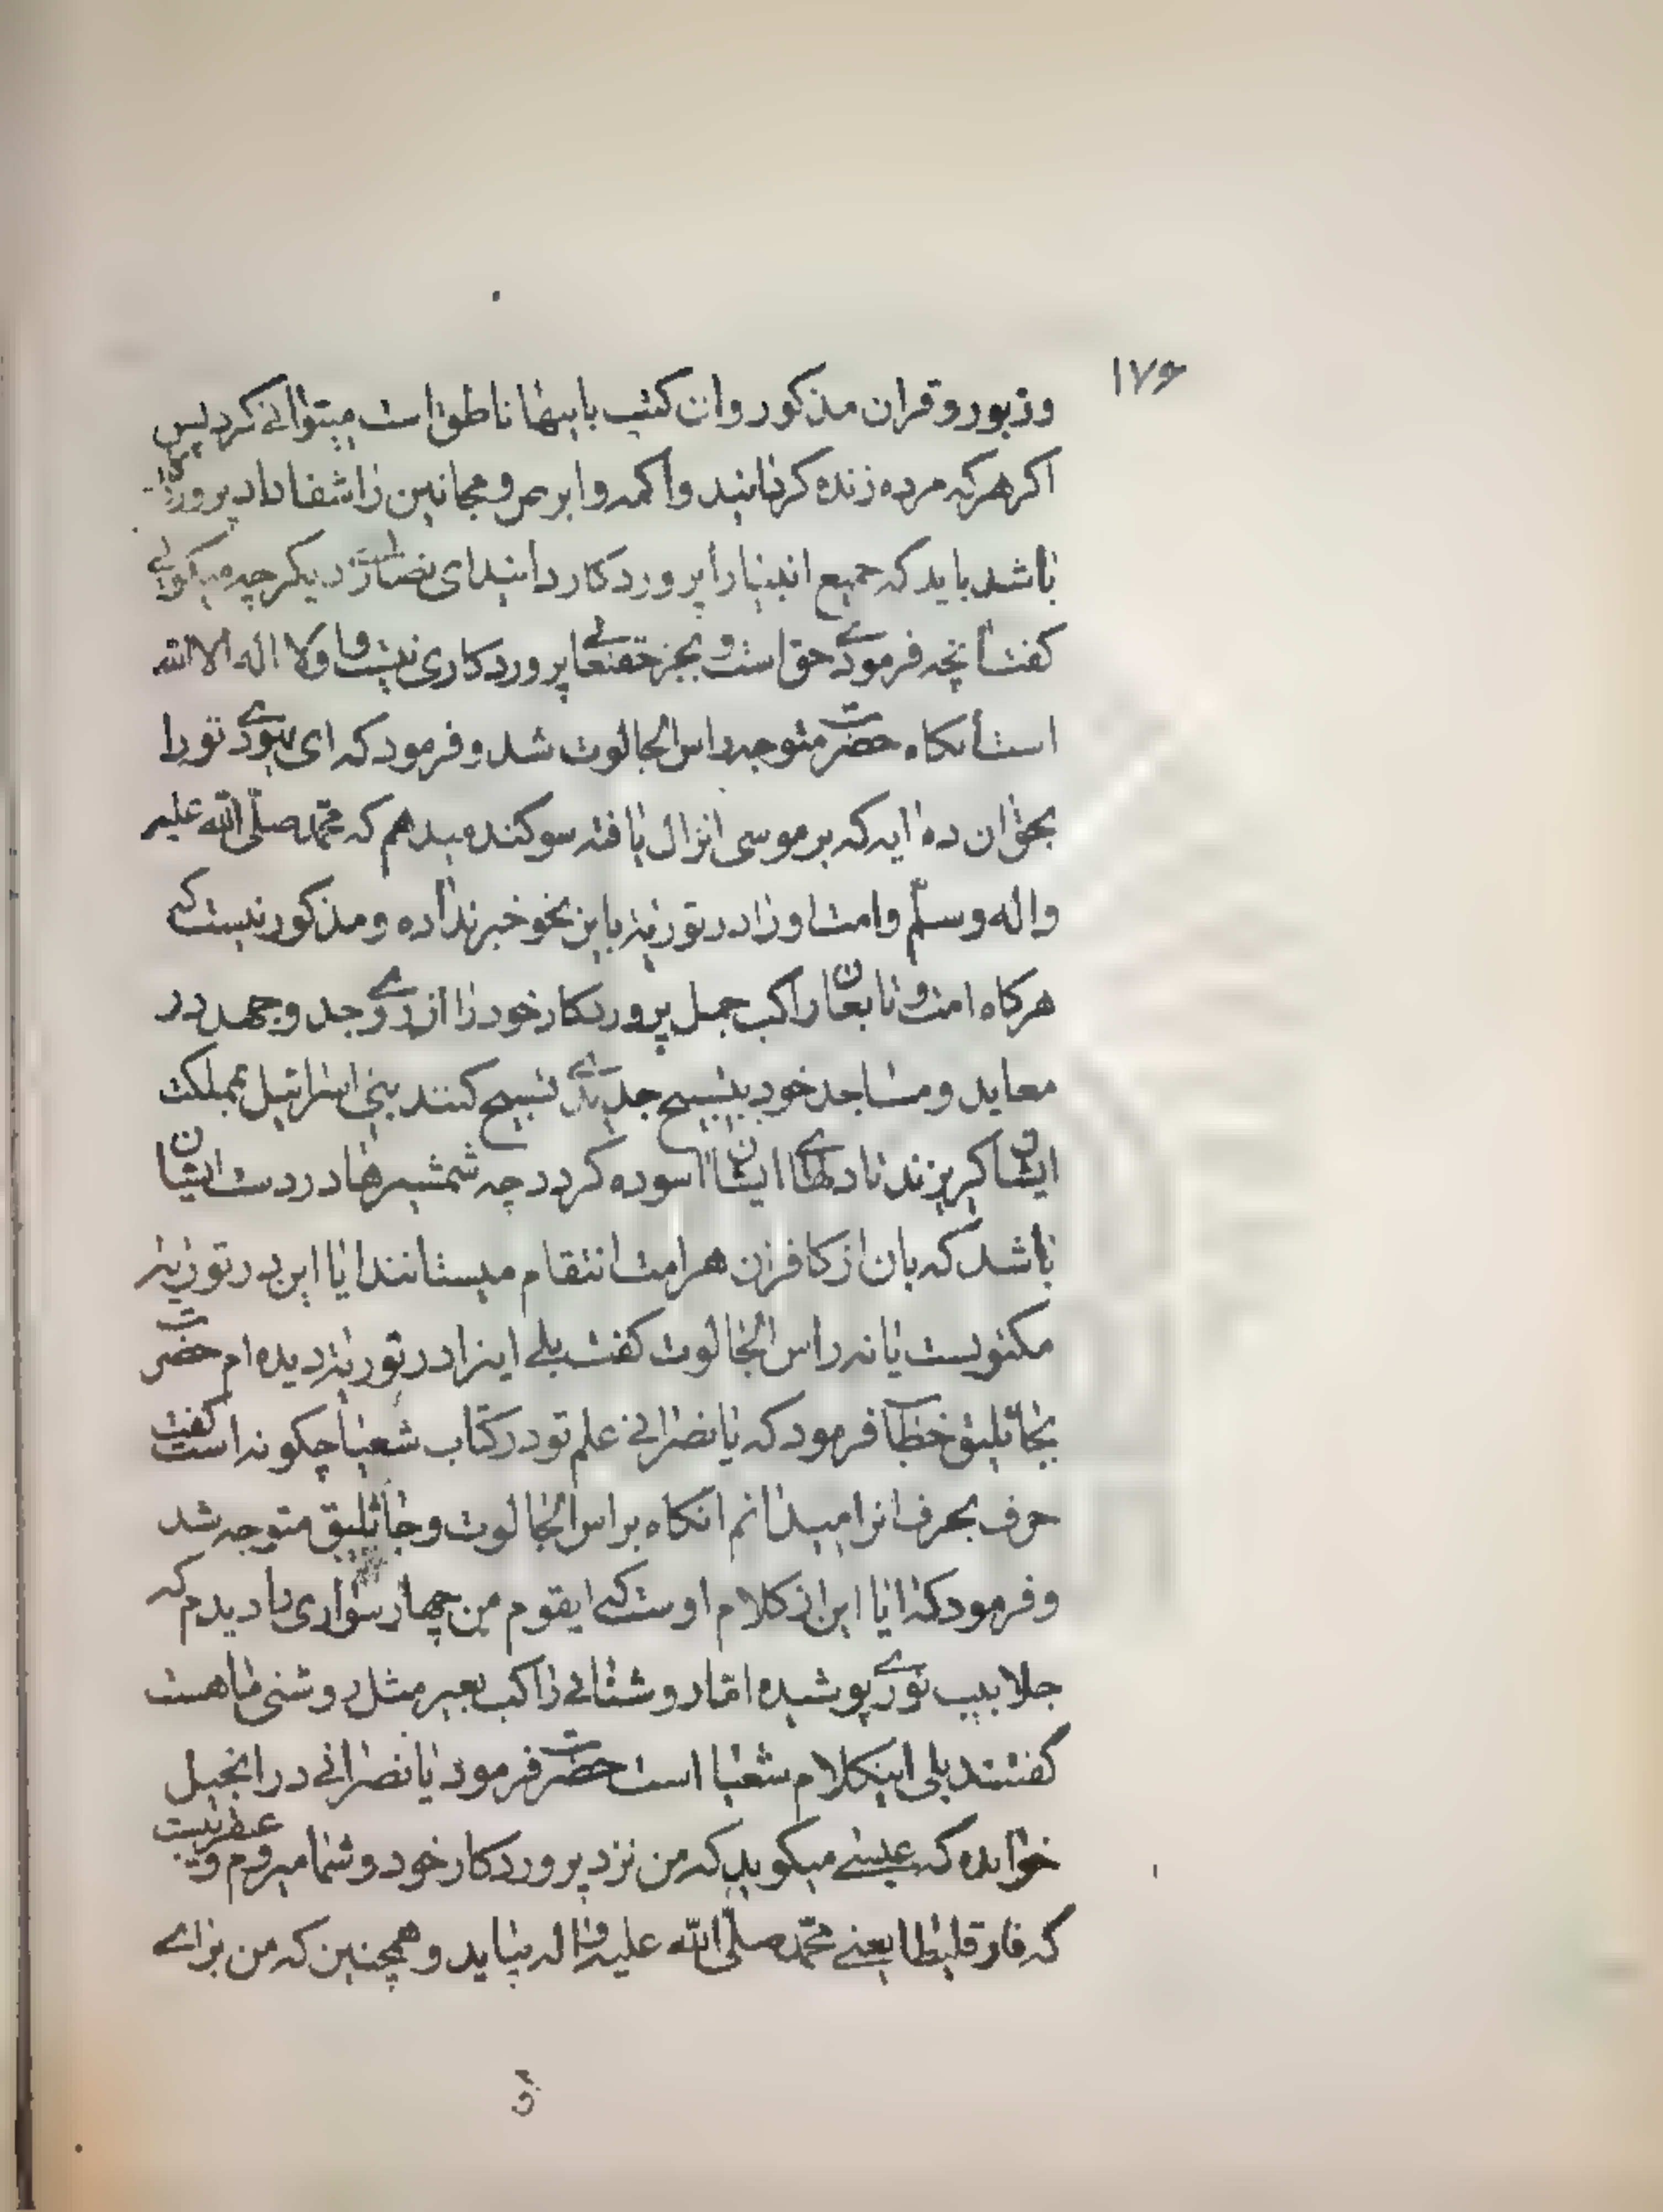 ۱۷۶
وزبور و قران مذکور وان کتب باینها ناطق است میتوانی کرد پس
اکر هرکه مرده زنده کرداند واکمه وابرص و مجانین را شفا داد پروردکار
باشد باید که جمیع انبیا را پروردکار دانید ای نصرانی دیکر چه میکوئی
کفت آنچه فرمودی حق است و بجز حقتعالی پروردکاری نیست ولا اله الا الله
است آنکاه حضرت متوجه راس الجالوت شد و فرمود که ای یهودی تو را
بحق ان ده ایه که بر موسی انزال یافته سوکند میدهم که محمد صلی الله علیه
واله وسلم وامت او را در توریة باین نحو خبر نداده و مذکور نیست که
هرکاه امت و تابعان راکب جمل پروردکار خود را از روی جد وجهد در
معابد و مساجد خود بتسبیح جدیدی تسبیح کنند بنی اسرائیل بمملکت
ایشان کریزند تا دلهای ایشان اسوده کردد چه شمشیرها در دست ایشان
باشد که بان از کافران هر امت انتقام میستانند ایا این در توریة
مکتوبست یا نه راس الجالوت کفت بلی اینرا در توریة دیده ام حضرت
بجاثلیق خطاب فرمود که یا نصرانی علم تو در کتاب شعیا چکونه است کفت
حرف بحرف انرا میدانم انکاه براس الجالوت و جاثلیق متوجه شد
و فرمود که ایا این از کلام اوست که ایقوم من چهار سواری را دیدم که
جلابیب نوری پوشیده اما روشنائی راکب بعیر مثل روشنی ماهست
کفتند بلی اینکلام شعیا است حضرت فرمود یا نصرانی در انجیل
خوانده که عیسی میکوید که من نزد پروردکار خود و شما میروم و عنقریبست
که فارقلیطا یعنی محمد صلی الله علیه واله بیاید و همچنین که من برای